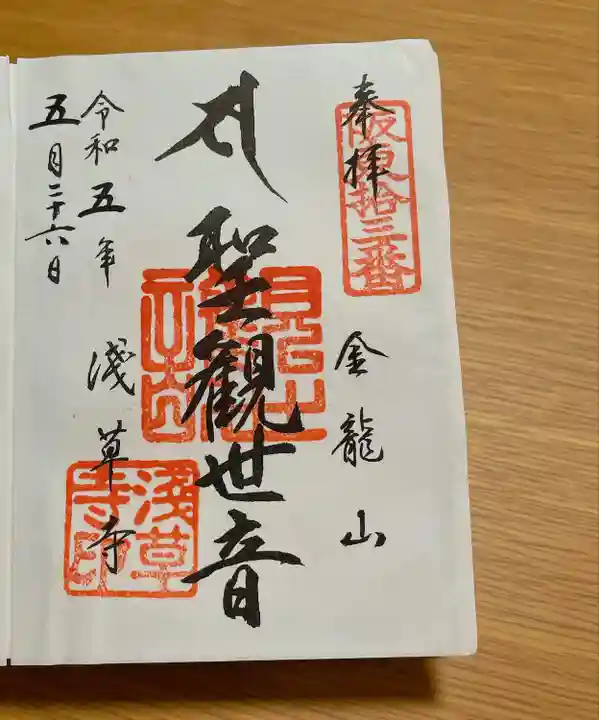 奉拝
阪東拾三番
金龍山
聖観世音
浅草寺
浅草寺印
令和五年
五月二十六日